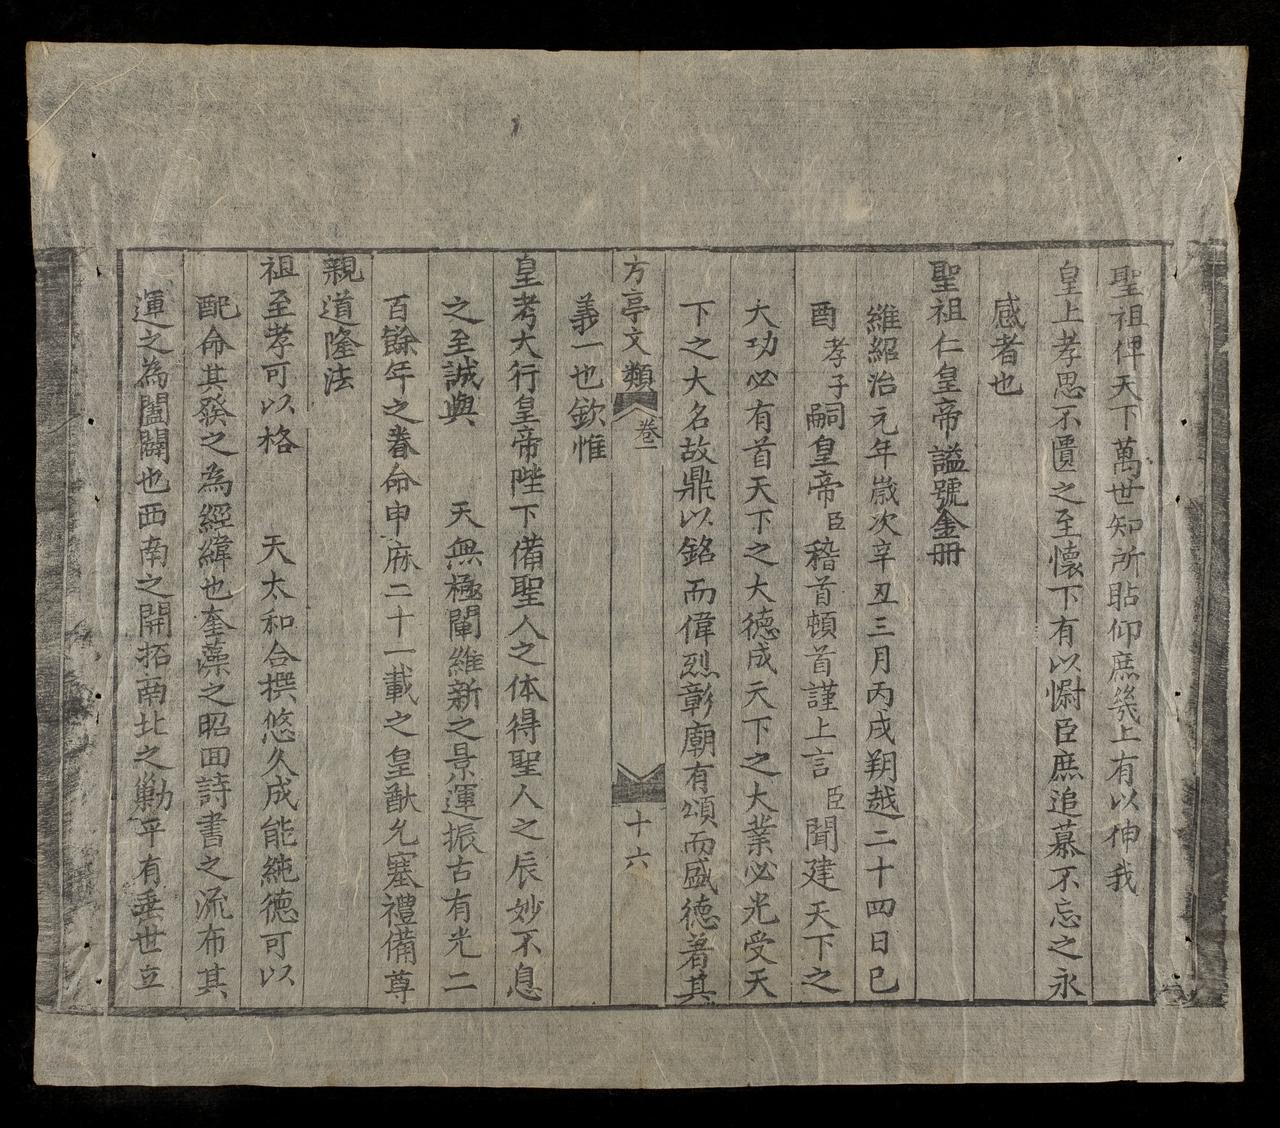 聖祖俾天下萬世知所貼仰庶幾上有以伸我
皇上孝思不匱之至懷下有以慰臣庶追慕不忘之永
感者也
聖祖仁皇帝謚號金冊
維紹治元年歲次辛丑三月丙戌朔越二十四日己
酉孝子嗣皇帝臣稽首頓首謹上言臣聞建天下之
大功必有首天下之大德成天下之大業必光受天
下之大名故鼎以銘而偉烈彰廟有頌而盛德著其
義一也欽惟
方亭文類 卷二 十六
皇考大行皇帝陛下備聖人之体得聖人之辰妙不息
之至誠與 天無極闡維新之景運振古有光二
百餘年之眷命申庥二十一載之皇猷允塞禮備尊
親道隆法
祖至孝可以格 天太和合撰悠久成能純德可以
配命其發之為經緯也奎藻之昭回詩書之流布其
運之為闔闢也西南之開拓南北之勦平有垂世立